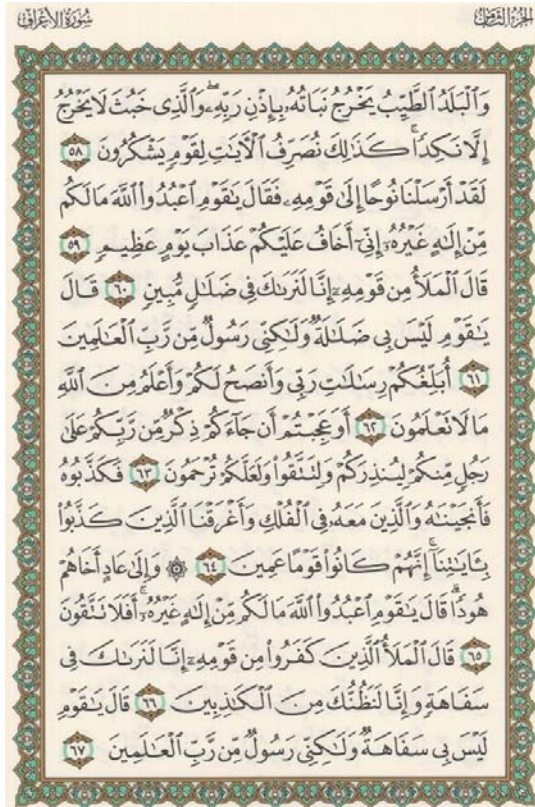 الجزء الثامن
سورة الأعراف
وَالْبَلَدُ الطَّيِّبُ يَخْرُجُ نَبَاتُهُۥ بِإِذْنِ رَبِّهِۦ ۖ وَالَّذِى خَبُثَ لَا يَخْرُجُ
إِلَّا نَكِدًا ۚ كَذَٰلِكَ نُصَرِّفُ الْآيَٰتِ لِقَوْمٍ يَشْكُرُونَ ٥٨
لَقَدْ أَرْسَلْنَا نُوحًا إِلَىٰ قَوْمِهِۦ فَقَالَ يَٰقَوْمِ اعْبُدُوا۟ اللَّهَ مَا لَكُم
مِّنْ إِلَٰهٍ غَيْرُهُۥٓ إِنِّىٓ أَخَافُ عَلَيْكُمْ عَذَابَ يَوْمٍ عَظِيمٍ ٥٩
قَالَ الْمَلَأُ مِن قَوْمِهِۦٓ إِنَّا لَنَرَىٰكَ فِى ضَلَٰلٍ مُّبِينٍ ٦٠ قَالَ
يَٰقَوْمِ لَيْسَ بِى ضَلَٰلَةٌ وَلَٰكِنِّى رَسُولٌ مِّن رَّبِّ الْعَٰلَمِينَ
٦١ أُبَلِّغُكُمْ رِسَٰلَٰتِ رَبِّى وَأَنصَحُ لَكُمْ وَأَعْلَمُ مِنَ اللَّهِ
مَا لَا تَعْلَمُونَ ٦٢ أَوَعَجِبْتُمْ أَن جَآءَكُمْ ذِكْرٌ مِّن رَّبِّكُمْ عَلَىٰ
رَجُلٍ مِّنكُمْ لِيُنذِرَكُمْ وَلِتَتَّقُوا۟ وَلَعَلَّكُمْ تُرْحَمُونَ ٦٣ فَكَذَّبُوهُ
فَأَنجَيْنَٰهُ وَالَّذِينَ مَعَهُۥ فِى الْفُلْكِ وَأَغْرَقْنَا الَّذِينَ كَذَّبُوا۟
بِـَٔايَٰتِنَآ ۚ إِنَّهُمْ كَانُوا۟ قَوْمًا عَمِينَ ٦٤ ۞ وَإِلَىٰ عَادٍ أَخَاهُمْ
هُودًا ۗ قَالَ يَٰقَوْمِ اعْبُدُوا۟ اللَّهَ مَا لَكُم مِّنْ إِلَٰهٍ غَيْرُهُۥٓ ۚ أَفَلَا تَتَّقُونَ
٦٥ قَالَ الْمَلَأُ الَّذِينَ كَفَرُوا۟ مِن قَوْمِهِۦٓ إِنَّا لَنَرَىٰكَ فِى
سَفَاهَةٍ وَإِنَّا لَنَظُنُّكَ مِنَ الْكَٰذِبِينَ ٦٦ قَالَ يَٰقَوْمِ
لَيْسَ بِى سَفَاهَةٌ وَلَٰكِنِّى رَسُولٌ مِّن رَّبِّ الْعَٰلَمِينَ ٦٧